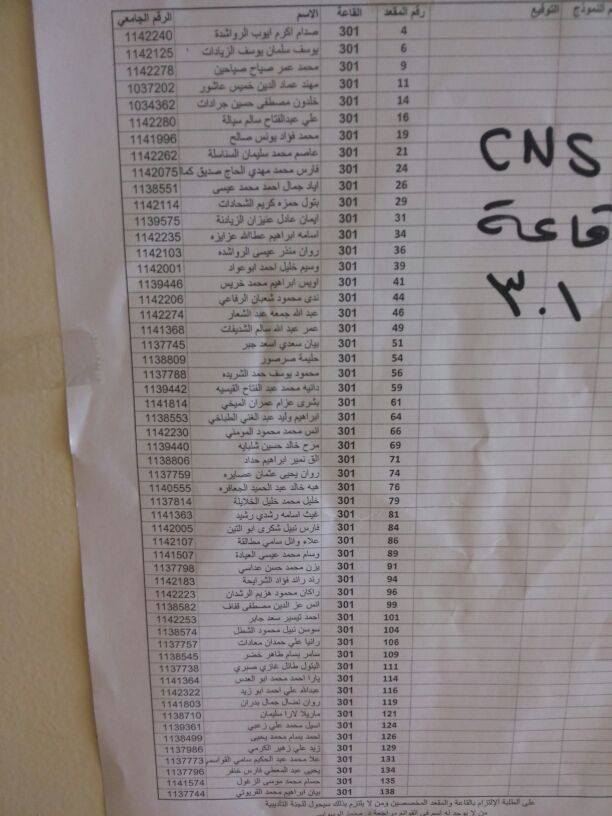 الرقم الجامعي الاسم القاعة رقم المقعد التوقيع النموذج
1142240 صدام اكرم ايوب الرواشدة 301 4
1142125 يوسف سلمان يوسف الزيادات 301 6
1142278 محمد عمر صباح صباحين 301 9
1037202 مهند عماد الدين خميس عاشور 301 11
1034362 خلدون مصطفى حسين جرادات 301 14
1142280 علي عبدالفتاح سالم سيالة 301 16
1141996 محمد فؤاد يونس صالح 301 19
1142262 عاصم محمد سليمان السناسلة 301 21
1142075 فارس محمد مهدي الحاج صديق كمال 301 24
1138551 اياد جمال احمد محمد عيسى 301 26
1142114 بتول حمزه كريم الشحادات 301 29
1139575 ايمان عادل عنيزان الزيادنة 301 31
1142235 اسامه ابراهيم عطاالله عزايزه 301 34
1142103 روان منذر عيسى الرواشده 301 36
1142001 وسيم خليل احمد ابوعواد 301 39
1139446 اويس ابراهيم محمد خريس 301 41
1142206 ندى محمود شعبان الرفاعي 301 44
1142274 عبد الله جمعه عبد الشعار 301 46
1141368 عمر عبد الله سالم الشديفات 301 49
1137745 بيان سعدي اسعد جبر 301 51
1138809 حليمة صرصور 301 54
1137788 محمود يوسف حمد الشريده 301 56
1139442 دانيه محمد عبد الفتاح القيسيه 301 59
1141814 بشرى عزام عمران 301 61
1138553 ابراهيم وليد عبد الغني الطباخي 301 64
1142230 انس محمد محمود المومني 301 66
1139440 مرح خالد حسين شلبايه 301 69
1138806 الق نمير ابراهيم حداد 301 71
1137759 روان يحيى عثمان عصايره 301 74
1140555 هبه خالد عبد الحميد الجعافره 301 76
1137814 خليل محمد خليل الخلايلة 301 79
1141363 غيث اسامه رشدي رشيد 301 81
1142005 فارس نبيل شكرى ابو التين 301 84
1142107 علاء وائل سامي مطالقة 301 86
1141507 وسام محمد عيسى العيادة 301 89
1137798 يزن محمد حسن عداسي 301 91
1142183 رند رائد فؤاد الشرايحة 301 94
1142223 راكان محمود هزيم الرشدان 301 96
1138582 انس عز الدين مصطفى قفاف 301 99
1142253 احمد تيسير سعد جابر 301 101
1138574 سوسن نبيل محمود الشطل 301 104
1137757 رانيا علي حمدان معادات 301 106
1138545 سامر بسام طاهر خضر 301 109
1137738 البتول طائل غازي صبري 301 111
1141364 يارا احمد محمد ابو العدس 301 114
1142322 عبدالله علي احمد ابو زيد 301 116
1141803 روان نضال جمال بدران 301 119
1138710 ماريلا لارا سليمان 301 121
1139361 اسيل محمد علي زعبي 301 124
1138499 احمد بسام محمد يحيى 301 126
1137986 زيد علي زهير الكرمي 301 129
1137773 علا محمد عبد الحكيم سامي القواسمي 301 131
1137796 يحيى عبد المعطي فارس خنفر 301 134
1141574 حسام محمد موسى الزغول 301 135
1137744 بيان ابراهيم محمد القريوتي 301 138
CNS
قاعة
٣٠١
على الطلبة الإلتزام بالقاعة والمقعد المخصصين ومن لا يلتزم بذلك سيحول للجنة التأديبية
من لا يوجد له اسم في القوائم مراجعة د. محمد